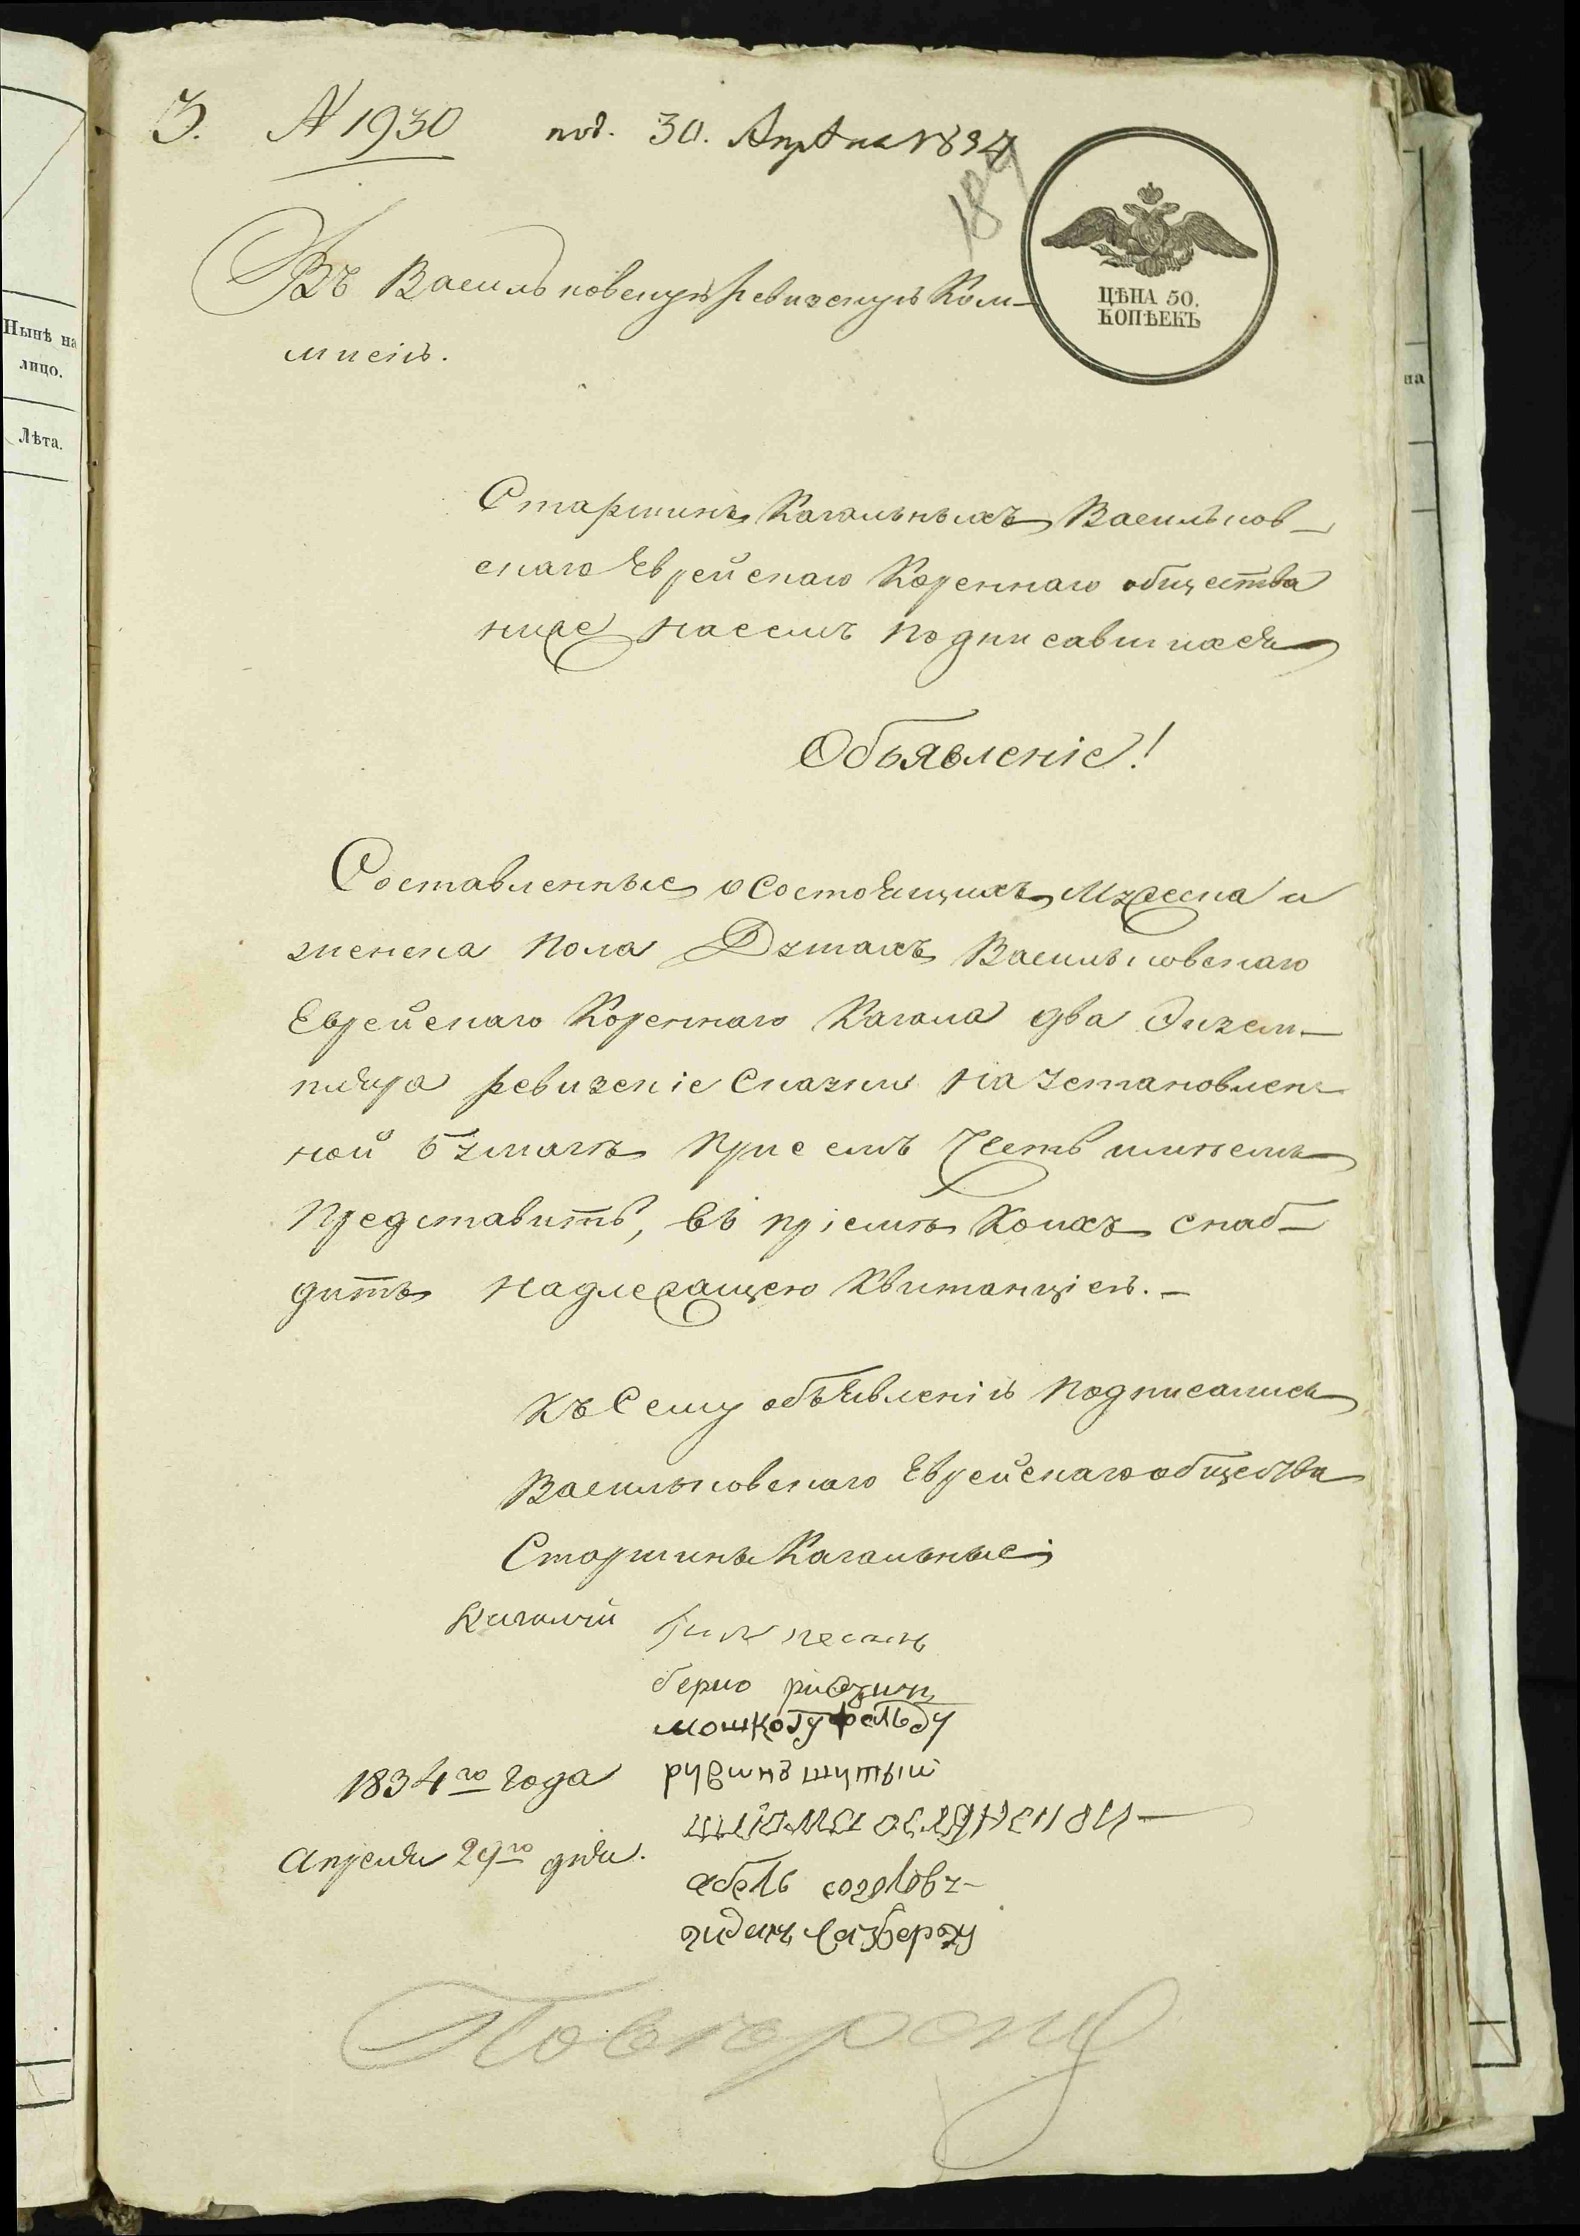 3. N 1930 под. 30. Апрѣля 1834
189
ЦѢНА 50.
КОПѢЕКЪ
Въ Васильковскую ревизскую Ком-
мисію.
Ныне на
лицо.
Лѣта.
на
Старшинъ Кагальныхъ Васильков-
скаго Еврейскаго Кореннаго общества
ниже насемъ подписавшихся
Объявленіе!
Составленные о состоящихъ мужеска и
женска пола Душахъ Васильковскаго
Еврейскаго Кореннаго Кагала два Экзем-
пляра ревизскіе Сказки на установлен-
ной бумагѣ при семъ Честь имѣемъ
Представить, въ пріемѣ Коихъ снаб-
дить надлежащею Квитанціею.-
Къ Сему объявленію подписались
Васильковскаго Еврейскаго общества
Старшины Кагальные
берко
мошко гуфельду
1834го Года
Апреля 29го дня.
абель